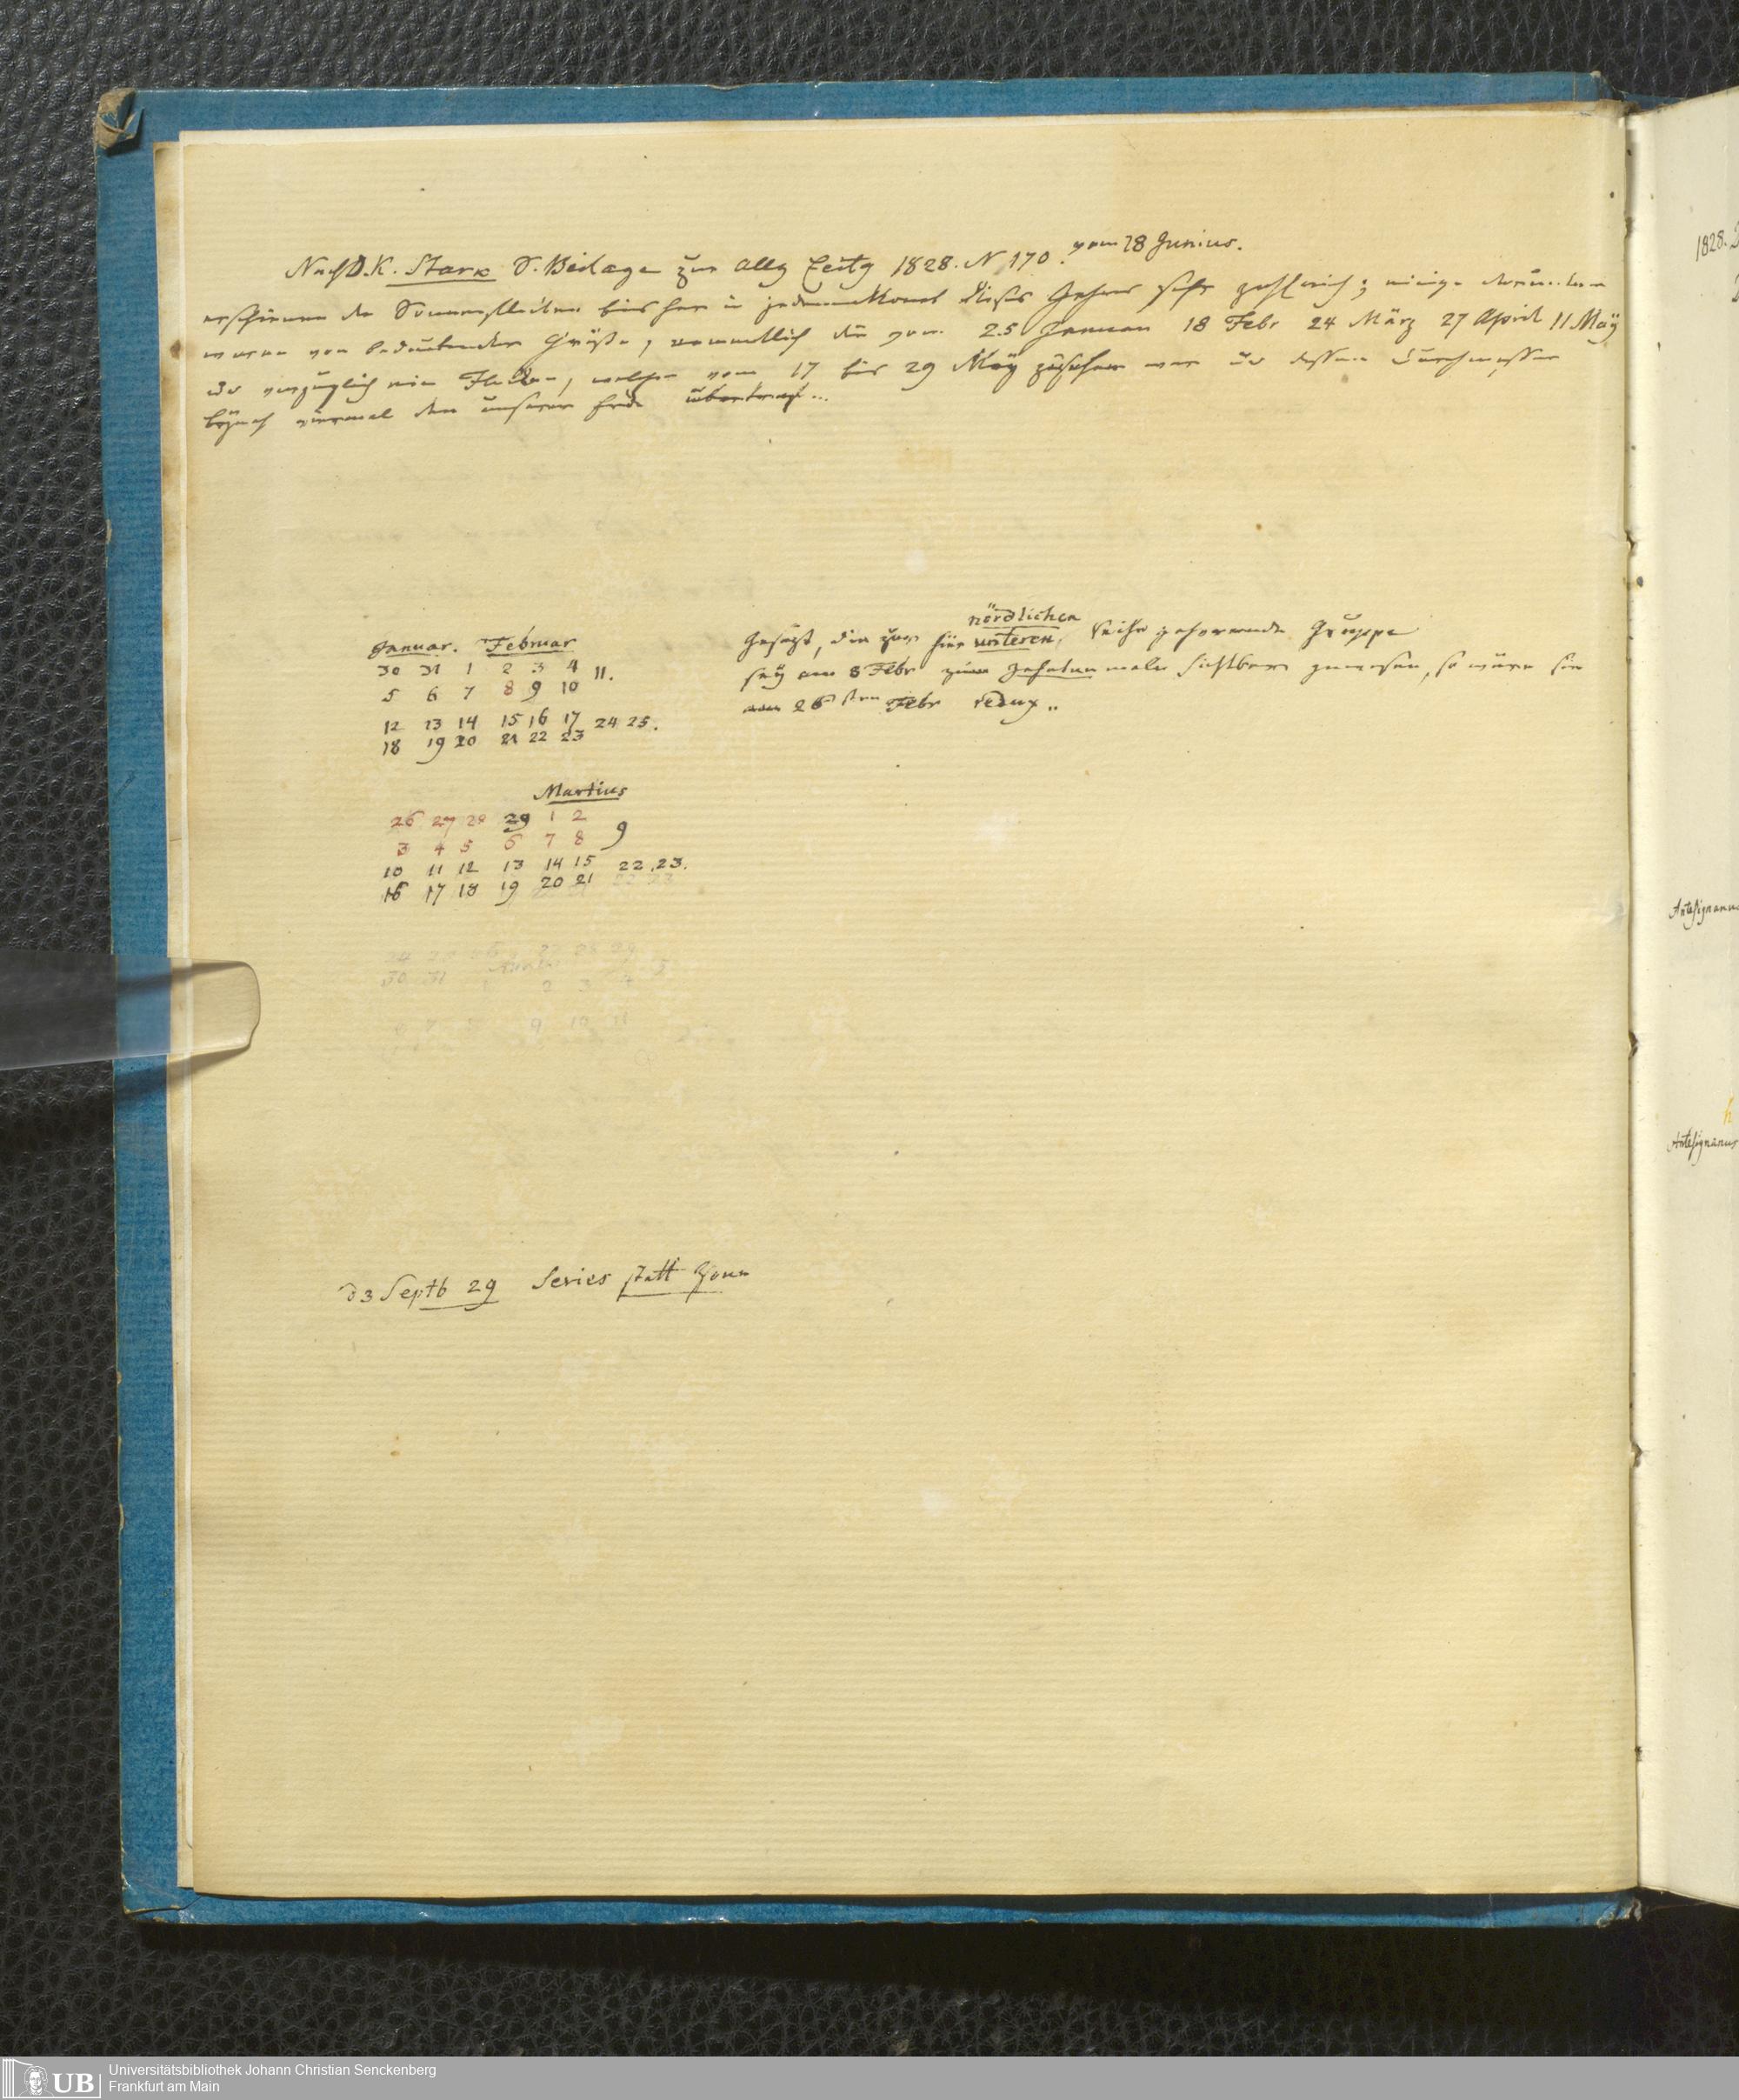 Nach D. K. Stark S. Beilage zur Allg Zeitg 1828. N 170. vom 18 Junius.
erschienen die Sonnenflecken bisher in jedem Monat dieses Jahres sehr zahlreich; einige darunter
waren von bedeutender Größe, namentlich die vom 25 Januar 18 Febr 24 März 27 April 11 Maÿ
vorzüglich ein Flecken, welcher vom 17 bis 29 Maÿ zusehen war dessen Durchmesser
beynah viermal den unserer Erde übertraf...
Januar. Februar
30 31 1 2 3 4 11.
5 6 7 8 9 10
12 13 14 15 16 17 24 25.
18 19 20 21 22 23
Gesezt, die zur hier nördlichen unteren Reihe gehörende Gruppe
seÿ am 8 Febr zum zehnten male sichtbar gewesen, so wäre sie
am 26sten Febr redux..
Martius
26 27 28 29 1 2
3 4 5 6 7 8 9
10 11 12 13 14 15 22.23.
16 17 18 19 20 21 22 23
24 25 26 27 28 29
30 31 1 2 3 4 5
9 10 11
d 3 Septb 29 Series statt Zone
1828.
Antesignanus
h
Antesignanus
Universitätsbibliothek Johann Christian Senckenberg
Frankfurt am Main
UB